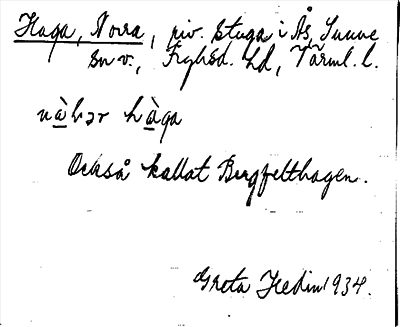 Haga, Norra, riv. stuga i Ås, Sunne
sn v., Fryksd. hd, Värml. l.
nå̀r hàga
Också kallat Bergfelthagen.
Greta Hedin 1934.